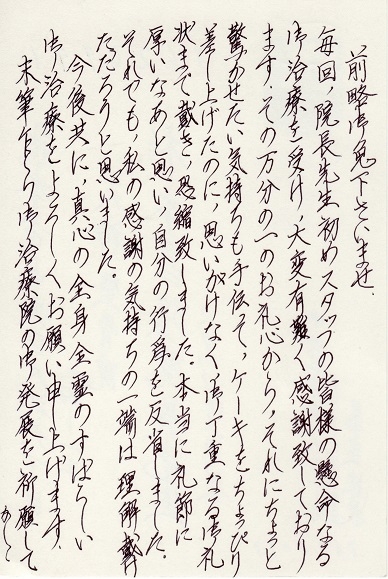 前略御免下さいませ.
毎回,院長先生初めスタッフの皆様の懸命なる
御治療を受け,大変有難く感謝致しており
ます.その万分の一のお礼心から,それにちょっと
驚かせたい気持ちも手伝って,ケーキをちょっぴり
差し上げたのに,思いがけなく御丁重なる御礼
状まで戴き,恐縮致しました。本当に礼節に
厚いなあと思い,自分の行為を反省しました。
それでも,私の感謝の気持ちの一端は理解戴け
ただろうと思いました。
今後共に,真心の全身全霊のすばらしい
御治療をよろしくお願い申し上げます.
末筆乍ら御治療院の御発展を祈願して
かしこ